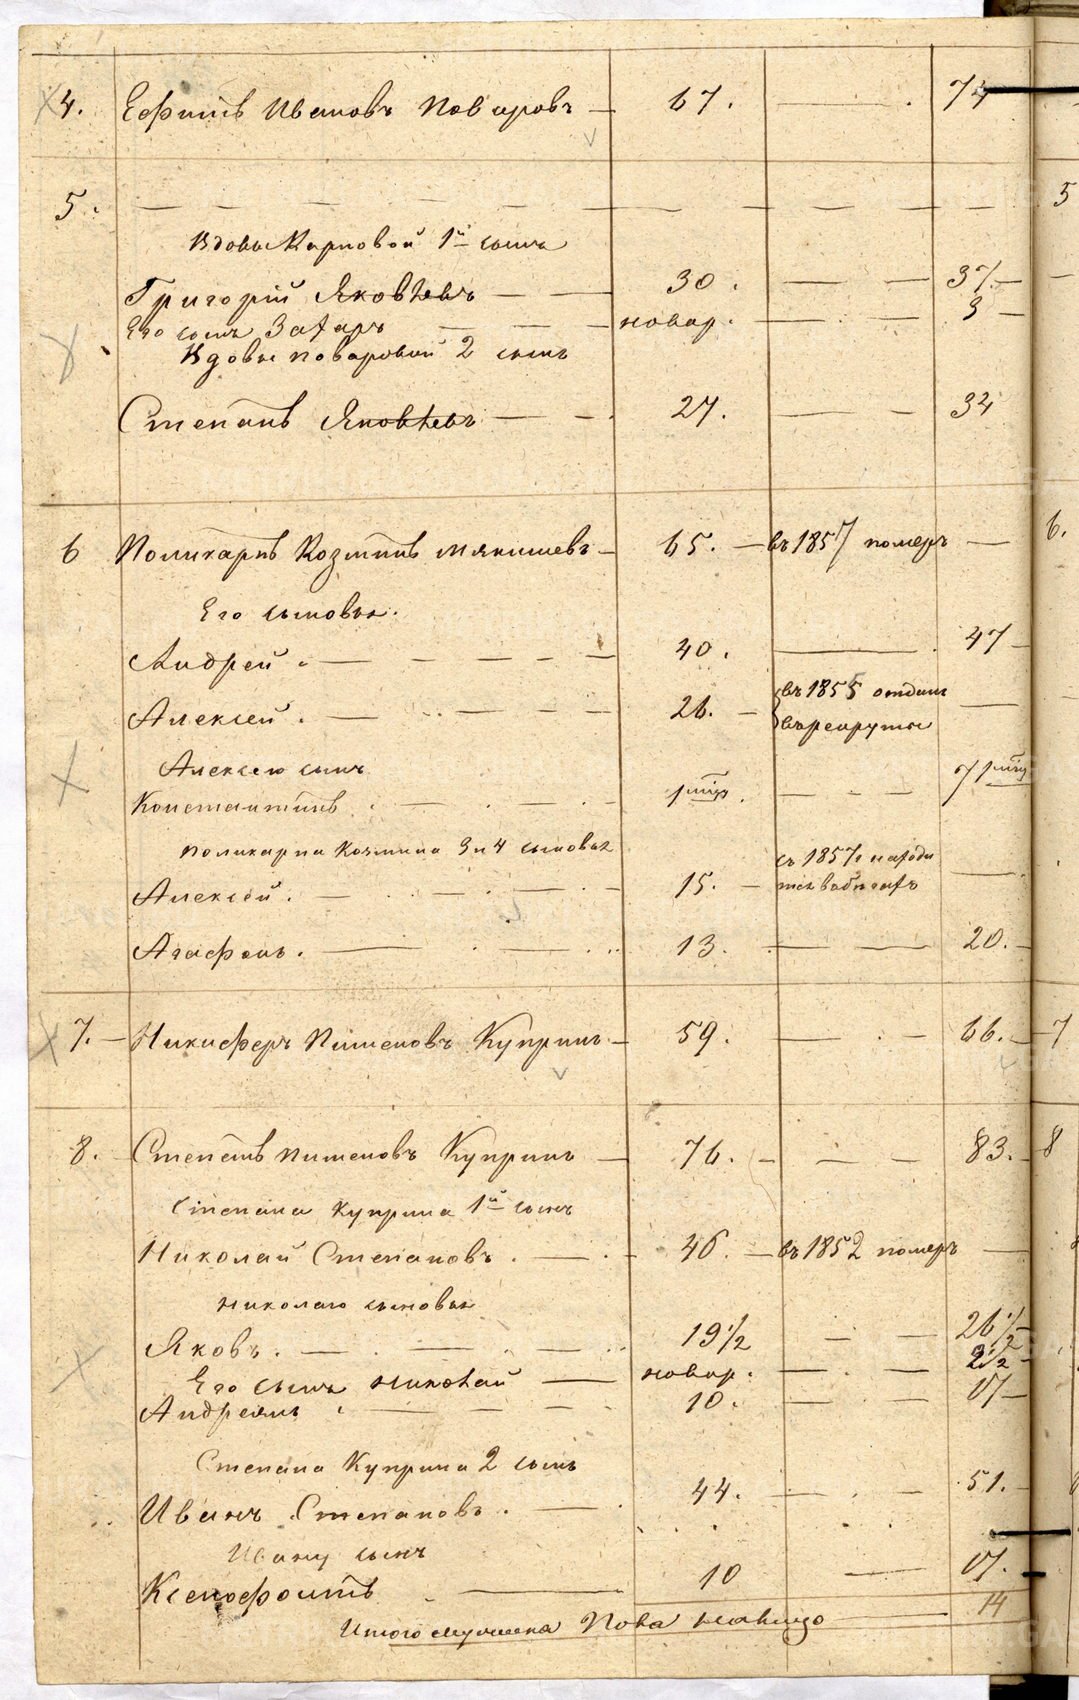 4. Ефимъ Ивановъ Поваровъ — 67. — . 74
5. — — — — — — — — 5
Вдовы Карповой 1й сынъ
Григорій Яковлевъ — — 30. — — 37. —
Его сынъ Захаръ — — — новор. — — 3 —
Вдовы Поваровой 2 сынъ
Степанъ Яковлевъ — — 27. — — 34
6 Поликарпъ Козминъ Мякишевъ — 65. — въ 1857 померъ — 6.
Его сыновья.
Андрей. — — — — — 40. — 47 —
Алексей. — — — — 26. — въ 1855 отданъ —
въ рекруты
Алексею сынъ
Константинъ. — — — — — — 7
Поликарпа Козмина 3 и 4 сыновья
съ 1857 г находи
Алексей. — — — 15. — тся въ бегахъ —
Агафонъ. — — 13. — — 20. —
7. — Никифоръ Пименовъ Купринъ — 59. — — 66. — 7
8. Степанъ Пименовъ Купринъ — 76. — — — 83. — 8
Степана Куприна 1й сынъ
Николай Степановъ. — — 46. — въ 1852 померъ —
Николаю сыновья
Яковъ. — — — 19 1/2 — — 26 1/2 —
Его сынъ Николай — новор. — — 2 1/2 —
Андреянъ — — — 10. — — 17 —
Степана Куприна 2 сынъ
Иванъ Степановъ. — 44. — — 51. —
Ивану сынъ
Ксенофонтъ — 10 — 17.
Итого мужеска Пола налицо — 14